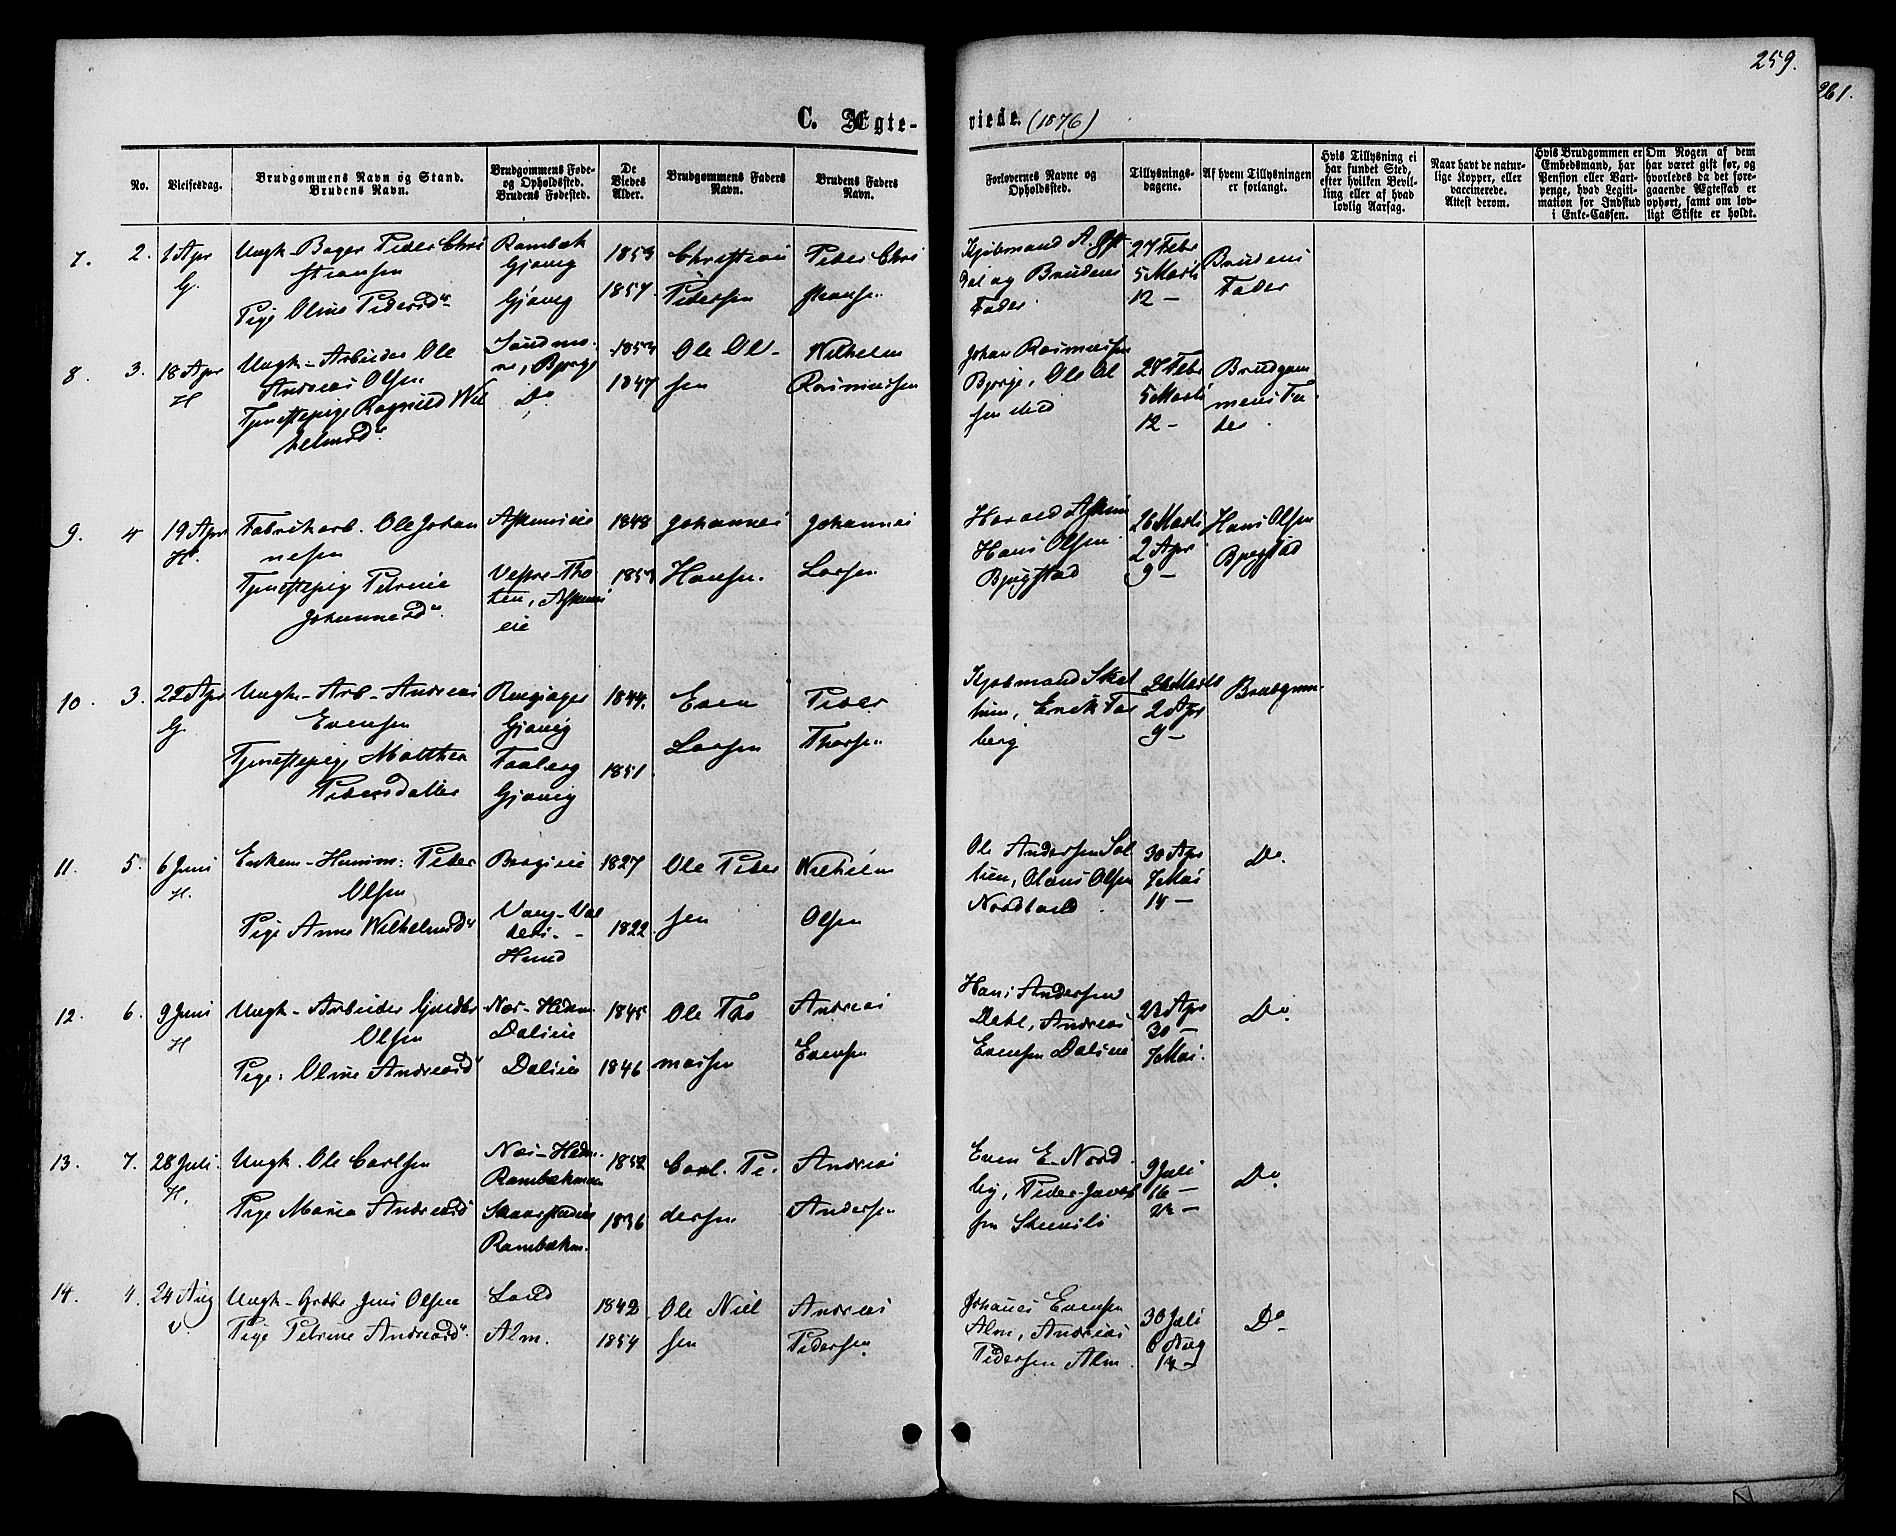 259.
261.
C. Ægte-
viede. (1876)
No.
Vielsesdag.
Brudgommens Navn og Stand.
Brudens Navn.
Brudgommens Føde-
og Opholdssted.
Brudens Fødested.
De
Viedes
Alder.
Brudgommens Faders
Navn.
Brudens Faders
Navn.
Forlovernes Navne og
Opholdssted.
Tillysnings-
dagene.
Af hvem Tillysningen
er forlangt.
Hvis Tillysning ei
har fundet Sted,
efter hvilken Bevil-
ling eller af hvad
lovlig Aarsag.
Naar havt de natur-
lige Kopper, eller
vaccinerede.
Attest derom.
Hvis Brudgommen er
Embedsmand, har
Pension eller Vart-
penge, hvad Legiti-
mation for Indskud
i Enke-Cassen.
Om Nogen af dem
har været gift før, og
hvorledes da det fore-
gaaende Ægteskab er
ophørt, samt om lov-
ligt Skifte er holdt.
7. 2. 1 Apr
G.
Ungk. Bager Peder Chri
stiansen
Pige Oline Pedersd
Rambæk
Gjøvig
Gjøvig
1853
1857
Christian
Pedersen
Peder Chri
stiansen
Kjøbmand A.
dal og Brudens
Fader
27 Febr
5 Marts
12 -
Brudens
Fader
8. 3. 18 Apr
H
Ungk - Arbeider Ole
Andreas Olsen
Tjenestepige Ragnild Wil
helmsd
1853
1847
Do
Ole Ol-
sen
Wilhelm
Rasmussen
Johan Rasmussen
Ole Ol
sen
27 Febr
5 Marts
12 -
Brudgom
mens Fa-
der.
9. 4 19 Apr
H.
Fabrikarb. Ole Johan
nesen
Tjenestepig Petrine
Johannesd
Vestre-Tho
ten,
eie
1848
1853
Johannes
Hansen.
Johannes
Larsen
Harald
Hans Olsen
Bjugstad
26 Marts
2 Apr
9 -
Hans Olsen
Bjugstad
10. 3. 22 Apr
G
Ungk - Arb - Andreas
Evensen
Tjenestepige Mathea
Pedersdatter
Gjøvig
Faaberg
Gjøvig
1844.
1851.
Even
Larsen
Peder
Thorsen
Kjøbmand
26 Marts
2 Apr
9 -
Brudgom-
11. 5. 6 Juni
H.
Enkem - Husm: Peder
Olsen
Pige Anne Wilhelmsd
Vang-Val
ders -
Hund
1827
1822.
Ole Peder
sen
Wilhelm
Olsen
Ole Andersen
Olaus Olsen
Nordland
30 Apr
7 Mai
14 -
Do
12. 6. 9 Juni
H
Ungk - Arbeider Gulbr
Olsen
Pige: Oline Andreasd
Næs-Hedm
Dalseie
Dalseie
1845
1846
Ole Tho
massen
Andreas
Evensen
Hans Andersen
Dahl, Andreas
Evensen Dalseie
23 Apr
30 -
7 Mai.
Do
13. 7. 28 Juli.
H.
Ungk. Ole Carlsen
Pige Maria Andreasd
Næs-Hedm.
Rambækm.
1852
1836
Carl Pe-
dersen
Andreas
Andersen
Even E. Nord
by, Peder
9 Juli
16 -
23 -
Do
14. 4. 24 Aug
V.
Ungk - Jens Olsen
Pige Petrine Andreasd
Land
Alm.
1842
1854
Ole Niel
sen
Andreas
Pedersen
Johanes Evensen
Alm, Andreas
Pedersen Alm.
30 Juli
6 Aug
13 -
Do